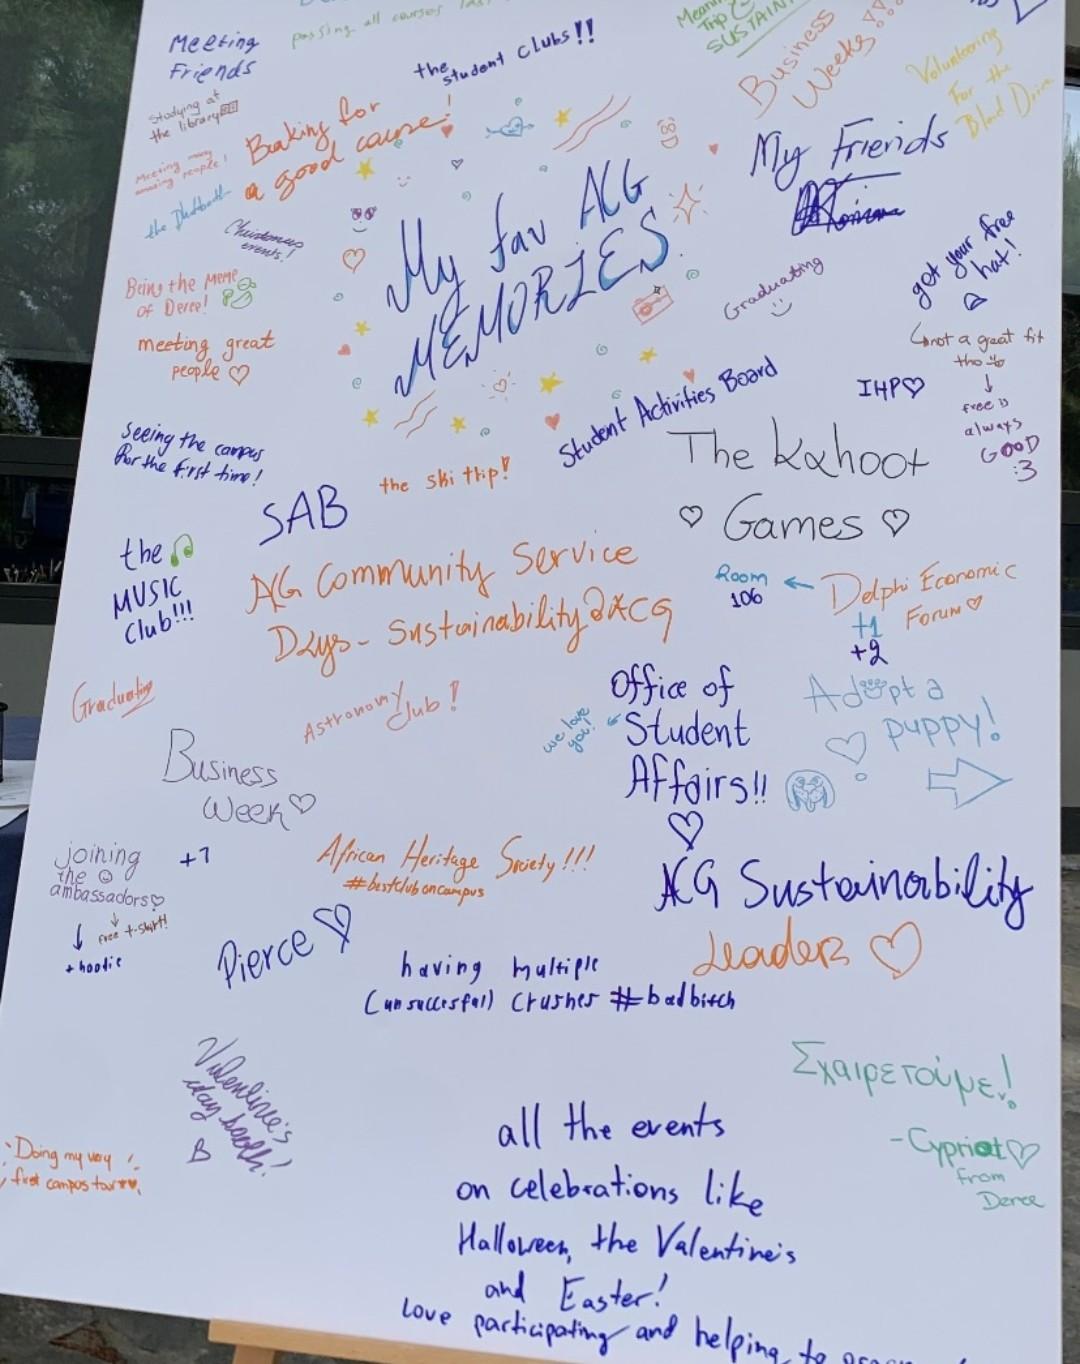 passing all courses
Meeting
Friends
the
student clubs!!
Trip
SUSTAIN
Business
Weeks!!!
Volunteering
For the
Blood Drive
Studying at
the library
Baking for
a good cause!
Meeting many
amazing people!
the
Christmas
events!
My fav ACG
MEMORIES
My Friends
get your free
hat!
not a great fit
tho
free is
always
GOOD
:3
Being the Meme
of Deree!
meeting great
people ♡
Graduating
Student Activities Board
IHP♡
Seeing the campus
for the first time!
the ski trip!
SAB
The Kahoot
♡ Games ♡
the
MUSIC
Club!!!
ACG Community Service
Days - Sustainability@ACG
Room
106
←
Delphi Economic
Forum♡
+1
+2
Graduating
Astronomy
club!
we love
you!
Office of
Student
Affairs!!
♡
Adopt a
puppy!
Business
Week♡
joining
the ☺
ambassadors♡
+1
↓ free t-shirt!
+ hoodie
African Heritage Society!!!
#bestcluboncampus
ACG Sustainability
Leaders ♡
Pierce ♡
having multiple
(unsuccesful) crushes #badbitch
Valentine's
day booth!
Σχαιρετούμε!
-Cypriot♡
from
Deree
Doing my very
first campus tour
all the events
on celebrations like
Halloween, the Valentine's
and Easter!
love participating and helping to